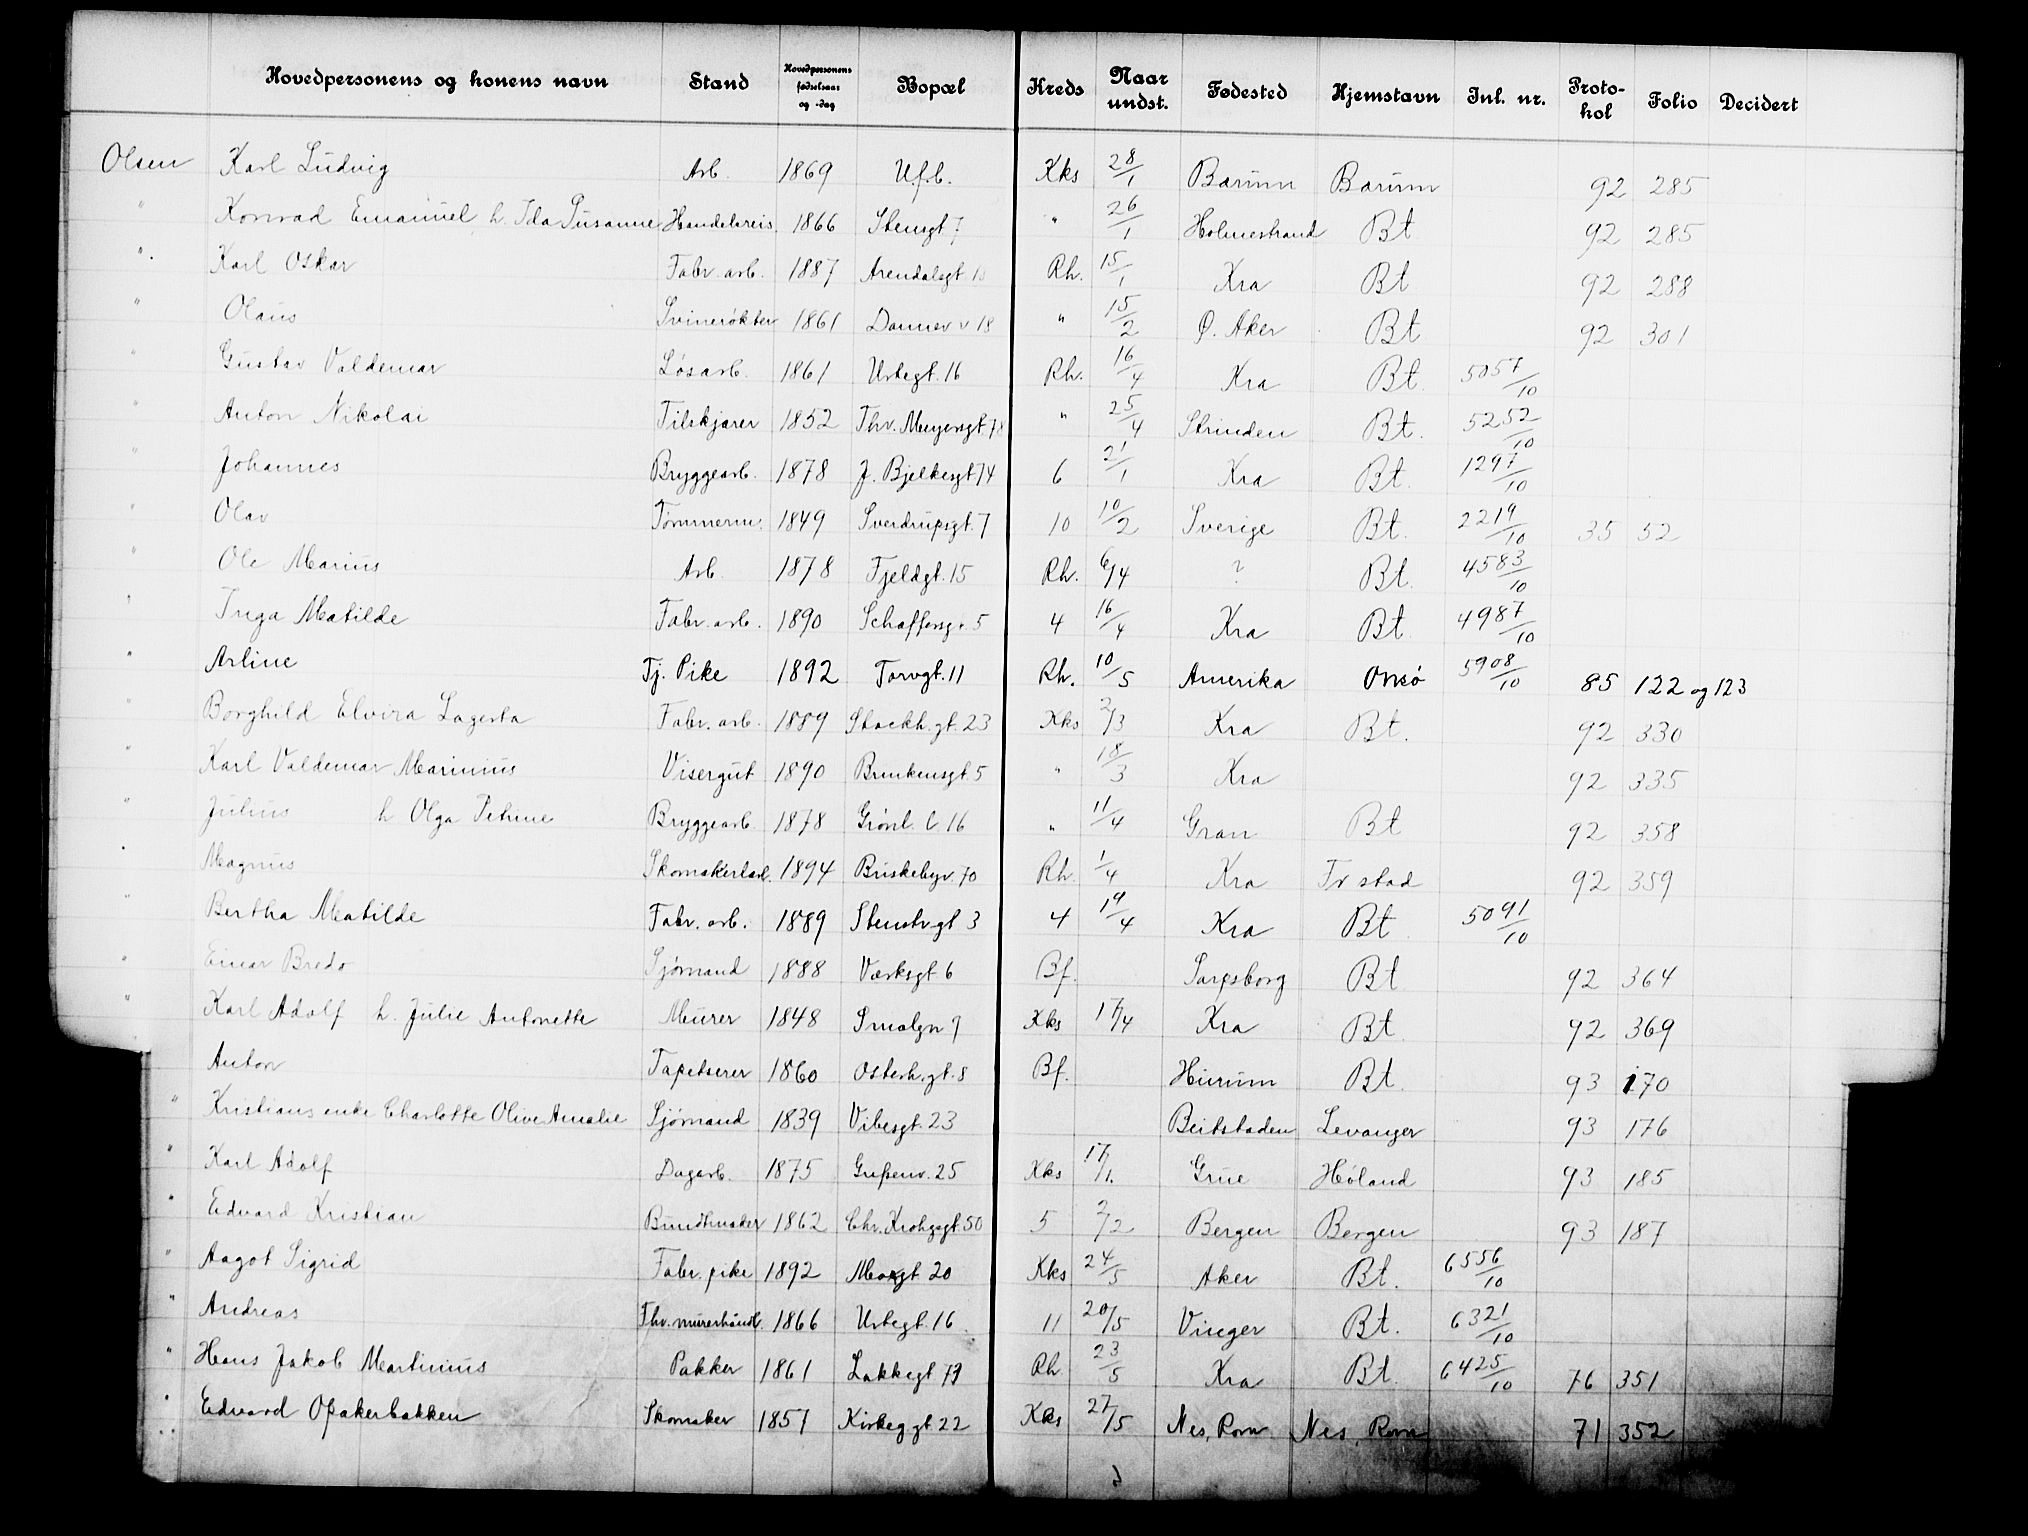 Hovedpersonens og konens navn | Stand | Hovedpersonens fødselsaar og -dag | Bopæl | Kreds | Naar undst. | Fødested | Hjemstavn | Inl. nr. | Protokol | Folio | Decidert
Olsen | Karl Ludvig | Arb. | 1869 | U.f.b. | Kks | 28/1 | Bærum | Bærum | 92 | 285
" | Konrad Emanuel, h. Ida Susanne | Handelsreis. | 1866 | Stensgt 7 | " | 26/1 | Holmestrand | Bt | 92 | 285
" | Karl Oskar | Fabr. arb. | 1887 | Arendalsgt | Rh. | 15/1 | Kra | Bt | 92 | 288
" | Olaus | Svinerøkter | 1861 | Dannev v 18 | " | 15/2 | Ø. Aker | Bt | 92 | 301
" | Gustav Valdemar | Løsarb. | 1861 | Urtegt. 16 | Rh. | 16/4 | Kra | Bt. | 5057/10
" | Anton Nikolai | Tilskjærer | 1852 | Thv. Meyersgt 78 | " | 25/4 | Strinden | Bt. | 5252/10
" | Johannes | Bryggearb. | 1878 | J. Bjelkesgt 74 | 6 | 21/1 | Kra | Bt. | 1297/10
" | Olav | Tømmerm. | 1849 | Sverdrupsgt. 7 | 10 | 10/2 | Sverige | Bt. | 2219/10 | 35 | 52
" | Ole Marius | Arb. | 1878 | Fjeldgt. 15 | Rh. | 6/4 | ? | Bt. | 4583/10
" | Inga Matilde | Fabr. arb. | 1890 | Schaffersg. 5 | 4 | 16/4 | Kra | Bt. | 4987/10
" | Arline | Tj. Pike | 1892 | Torvgt. 11 | Rh. | 10/5 | Amerika | Onsø | 5908/10 | 85 | 122 og 123
" | Borghild Elvira Lagerta | Fabr. arb. | 1889 | Stockh. gt. 23 | Kks | 2/3 | Kra | Bt. | 92 | 330
" | Karl Valdemar Marinius | Visergut | 1890 | Brinkensgt. 5 | " | 18/3 | Kra | 92 | 335
" | Julius h Olga Petrine | Bryggearb. | 1878 | Grønl. l. 16 | " | 11/4 | Gran | Bt | 92 | 358
" | Magnus | Skomakerlærl. | 1894 | Briskebyv. 70 | Rh. | 1/4 | Kra | Fr stad | 92 | 359
" | Bertha Matilde | Fabr. arb. | 1889 | Stenstrgt 3 | 4 | 19/4 | Kra | Bt | 5091/10
" | Einar Bredo | Sjømand | 1888 | Værksgt 6 | Bf. | Sarpsborg | Bt | 92 | 364
" | Karl Adolf h. Julie Antonette | Murer | 1848 | Smalgn 9 | Kks | 17/4 | Kra | Bt. | 92 | 369
Anton | Tapetserer | 1860 | Osterh. gt. 8 | Bf. | Hurum | Bt. | 93 | 170
" | Kristians enke Charlotte Olive Amalie | Sjømand | 1839 | Vibesgt. 23 | Beitstaden | Levanger | 93 | 176
" | Karl Adolf | Dagarb. | 1875 | Grüßenv. 25 | Kks | 17/1. | Grue | Høland | 93 | 185
" | Edvard Kristian | Bundtmaker | 1862 | Chr. Krohgsgt. 50 | 5 | 2/2 | Bergen | Bergen | 93 | 187
" | Aagot Sigrid | Fabr. pike | 1892 | Mosgt. 20 | Kks | 24/5 | Aker | Bt. | 6556/10
" | Andreas | Fhv. murerhåndl. | 1866 | Urtegt. 16 | 11 | 20/5 | Vinger | Bt. | 6321/10
" | Hans Jakob Martinius | Pakker | 1861 | Lakkegt 71 | Rh | 23/5 | Kra | Bt. | 6425/10 | 76 | 351
" | Edvard Opakerbakken | Skomaker | 1857 | Kirkeg gt. 22 | Kks | 27/5 | Nes, Rom | Nes, Rom | 71 | 352